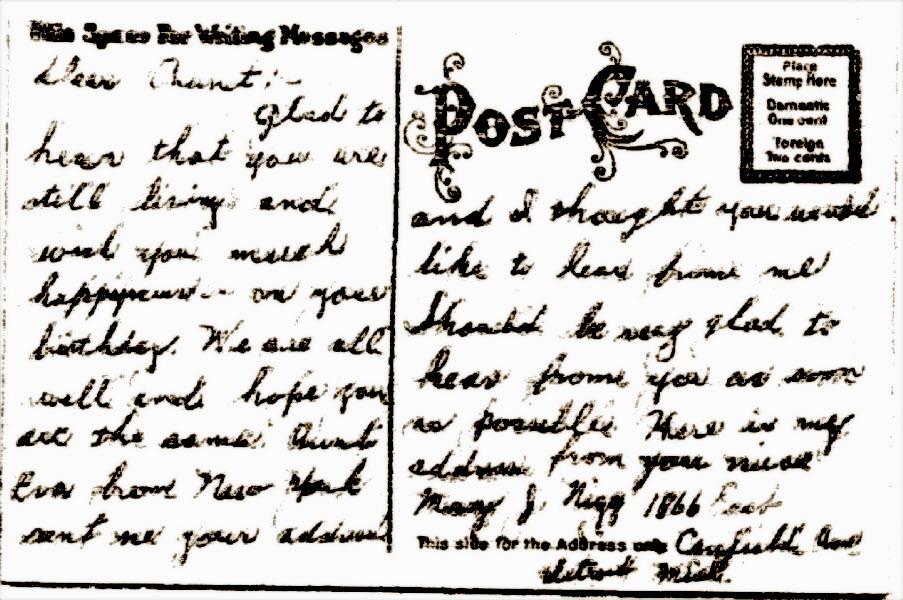 This Space For Writing Messages
Dear Aunt:-
Glad to
hear that you are
still living and
wish you much
happyness - on your
birthday. We are all
well and hope you
are the same. Aunt
Eva from New York
sent me your address
POST CARD
Place
Stamp Here
Domestic
One cent
Foreign
Two cents
and I thought you would
like to hear from me
Should be very glad to
hear from you as soon
as possible. Here is my
address from your niece
Mary J. Nigg 1866 East
This side for the Address only Canfield Ave
Detroit Mich.